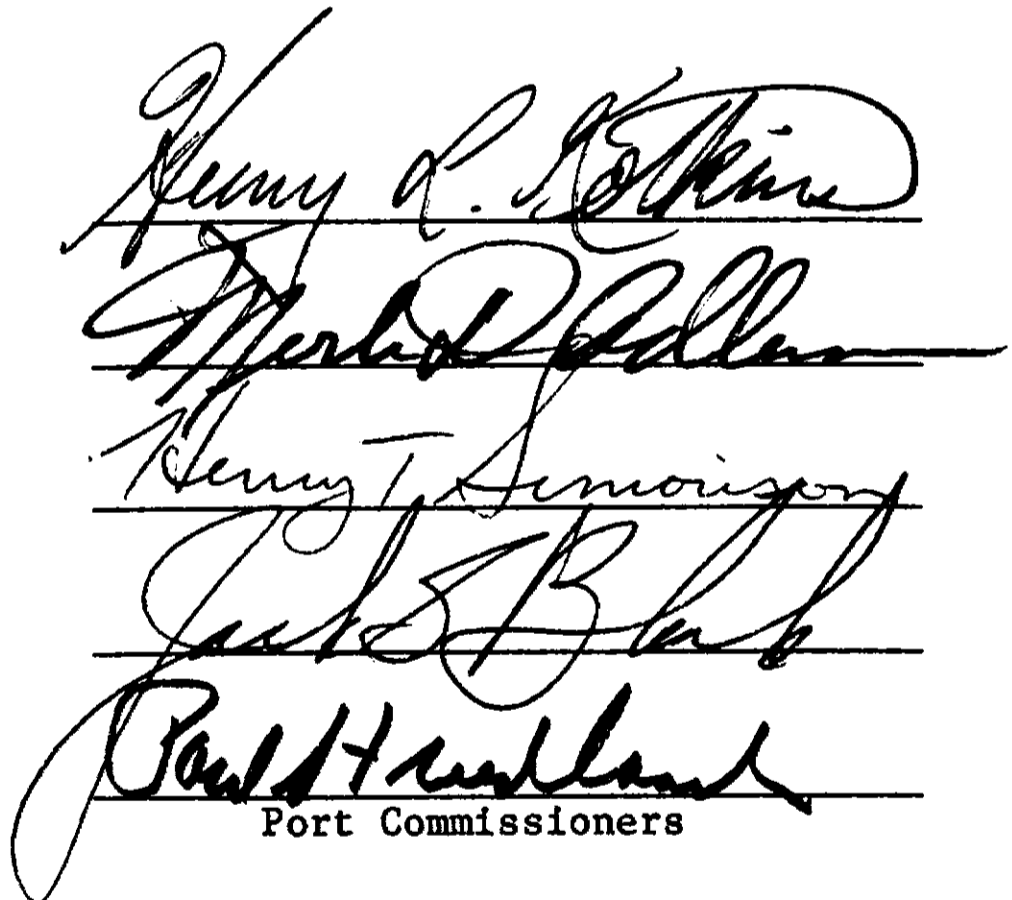 Henry L. Kotkins
Merle D. Adlum
Henry T. Simonson
Jack S Block
Paul H Friedlander
Port Commissioners